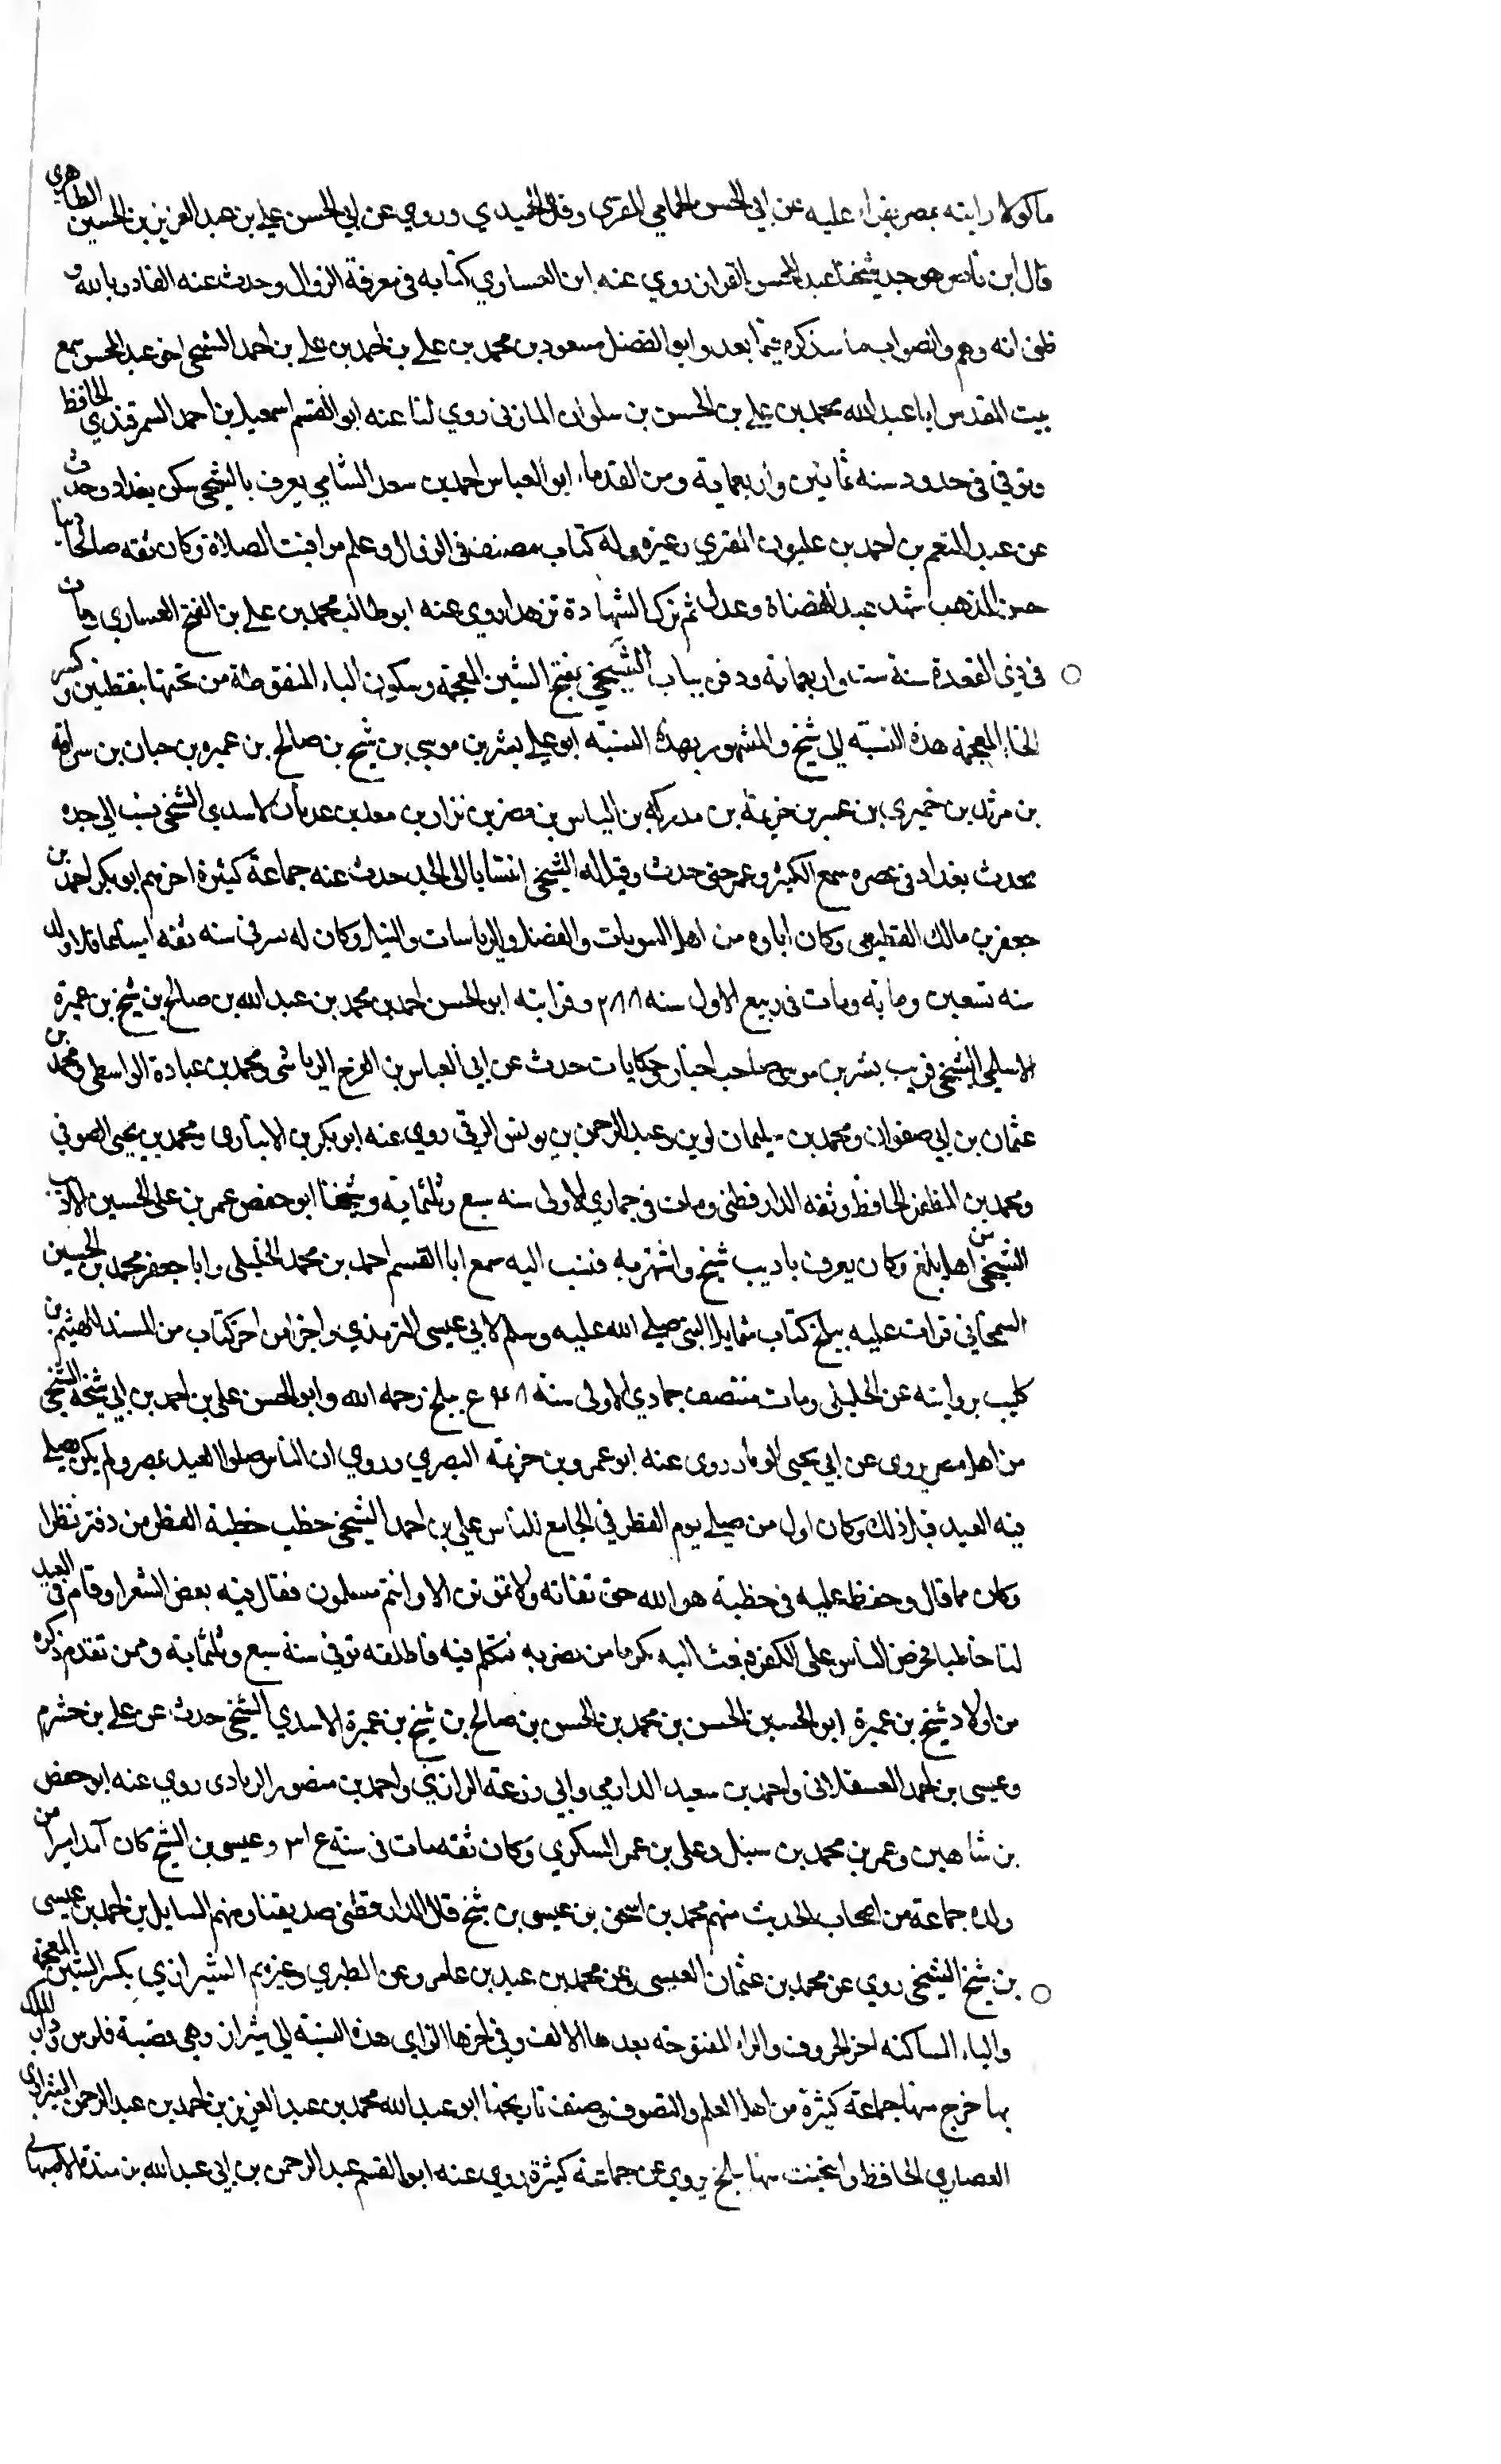 ماكولا رايته بمصر يقرا عليه عن ابي الحسن الحمامي المقري وقال الحميدي وروي عن ابي الحسن علي بن عبد العزيز بن الحسين الطاهري
قال ابن ناصر هو جد شيخنا عبد المحسن القزاز روي عنه ابن العساري كتابه في معرفة الزوال وحدث عنه القادر بالله و
ظني انه وهم والصواب ما سنذكره فيما بعد وابو الفضل مسعود بن محمد بن علي بن احمد بن علي بن احمد الشيحي اخو عبد المحسن سمع
بيت المقدس ابا عبد الله محمد بن علي بن الحسن بن سلوان المازني روي لنا عنه ابو القسم اسمعيل بن احمد السمرقندي الحافظ
وتوفي في حدود سنه ثمانين واربعماية ومن القدماء ابو العباس احمد بن سعد الشامي يعرف بالشيحي سكن بغداد وحدث
عن عبد المنعم بن احمد بن عليون المقري وغيره وله كتاب مصنف في الزوال وعلم مواقيت الصلاة وكان ثقه صالحا دينا
حسن المذهب شهد عند القضاة وعدل ثم ترك الشهادة تزهدا روي عنه ابو طالب محمد بن علي بن الفتح العساري ومات
في ذي القعدة سنة ست واربعمايه ودفن بباب الشيخي بفتح الشين المعجمة وسكون الياء المنقوطة من تحتها بنقطتين وكسر
الخاء المعجمه هذه النسبة الي شيخ والمشهور بهذه النسبة ابو علي بشر بن موسي بن شيخ بن صالح بن عميره بن حبان بن سراقه
بن مرثد بن حميري بن عسر بن خزيمة بن مدركه بن الياس بن مضر بن نزار بن معد بن عدنان الاسدي الشيخي ينسب الي جده
محدث بغداد في عصره سمع الكثير وعمر حتي حدث وقيل له الشيخي انتسابا الي الجد حدث عنه جماعة كثيرة اخرهم ابو بكر احمد بن
جعفر بن مالك القطيعي وكان اباوه من اهل البيوتات والفضل والرياسات والنبل وكان له سر في سنه ثقه امينا عاقلا ولد
سنه تسعين ومايه ومات في ربيع الاول سنه ٢٨٨ وقرابته ابو الحسن احمد بن محمد بن عبد الله بن صالح بن شيخ بن عميرة
الاسدي الشيخي قريب بشر بن موسي صاحب اخبار وحكايات حدث عن ابي العباس بن الفرج الرياشي ومحمد بن عبادة الواسطي ومحمد بن
عثمان بن ابي صفوان ومحمد بن سليمان لوين وعبد الرحمن بن يونس الرقي روي عنه ابو بكر بن الانباري ومحمد بن يحيي الصوفي
ومحمد بن المظفر الحافظ وثقه الدارقطني ومات في جمادي الاولى سنه سبع وثلثمايه وشيخنا ابو حفص عمر بن علي الحسين الاديب
الشيخي من اهل بلخ وكان يعرف باديب شيخ واشتهر به فنسب اليه سمع ابا القسم احمد بن محمد الخليلي وابا جعفر محمد بن الحسين
السمنجاني قرات عليه ببلخ كتاب شمايل النبي صلي الله عليه وسلم لابي عيسى الترمذي واجزا من اخر كتاب من المسند للهيثم بن
كليب بروايته عن الخليلي ومات منتصف جمادي الاولى سنه ع ببلخ رحمه الله وابو الحسن علي بن احمد بن ابي شيخة الشيخي
من اهل مصر يروى عن ابي يحيى الوقار روى عنه ابو عمرو بن خزيمة البصري وروي ان الناس صلوا العيد بمصر ولم يكن يصلي
فيه العيد قبل ذلك وكان اول من صلي يوم الفطر في الجامع للناس علي بن احمد الشيخي خطب خطبة الفطر من دفتر نظرا
وكان مما قال وحفظ عليه في خطبته هو الله حق تقاته ولا تموتن الا وانتم مسلمون فقال فيه بعض الشعرا وقام في العيد
لنا خاطبا يحرض الناس على الكفر فبعث اليه بكرما من نضربه تتكلم فيه فاطلقه توفي سنة سبع وثلثماية وممن تقدم ذكره
من اولاد شيخ بن عميرة ابو الحسين الحسن بن محمد بن الحسن بن صالح بن شيخ بن عميرة الاسدي الشيخي حدث عن علي بن خشرم
وعيسى بن احمد العسقلاني واحمد بن سعيد الدارمي وابي زرعة الرازي واحمد بن منصور الرمادى روي عنه ابو حفص
بن شاهين وعمر بن محمد بن سبنك وعلي بن عمر السكري وكان ثقه مات في سنة ع٣١ وعيسى بن الشيخ كان آمد اميرا من
ولده جماعة من اصحاب الحديث منهم محمد بن اسحق بن عيسى بن شيخ قال الدارقطني صديقنا ومنهم السايل بن احمد بن عيسى
بن شيخ الشيخي روي عن محمد بن عثمان العبسي وعن محمد بن عبيد بن عامر وعن الطبري وغيرهم الشيرازي بكسر الشين المعجمه
والياء الساكنه اخر الحروف والراء المفتوحه بعدها الالف وفي اخرها الزاي هذه النسبة الي شيراز وهي قصبة فارس ودار الملك
بها خرج منها جماعة كثيرة من اهل العلم والتصوف وصنف تاريخها ابو عبد الله محمد بن عبد العزيز بن احمد بن عبد الرحمن الشيرازي
القصاري الحافظ وانتخبت منها ببلخ يروي عن جماعة كثيرة روي عنه ابو القسم عبد الرحمن بن ابي عبد الله بن مندة الاصبهاني